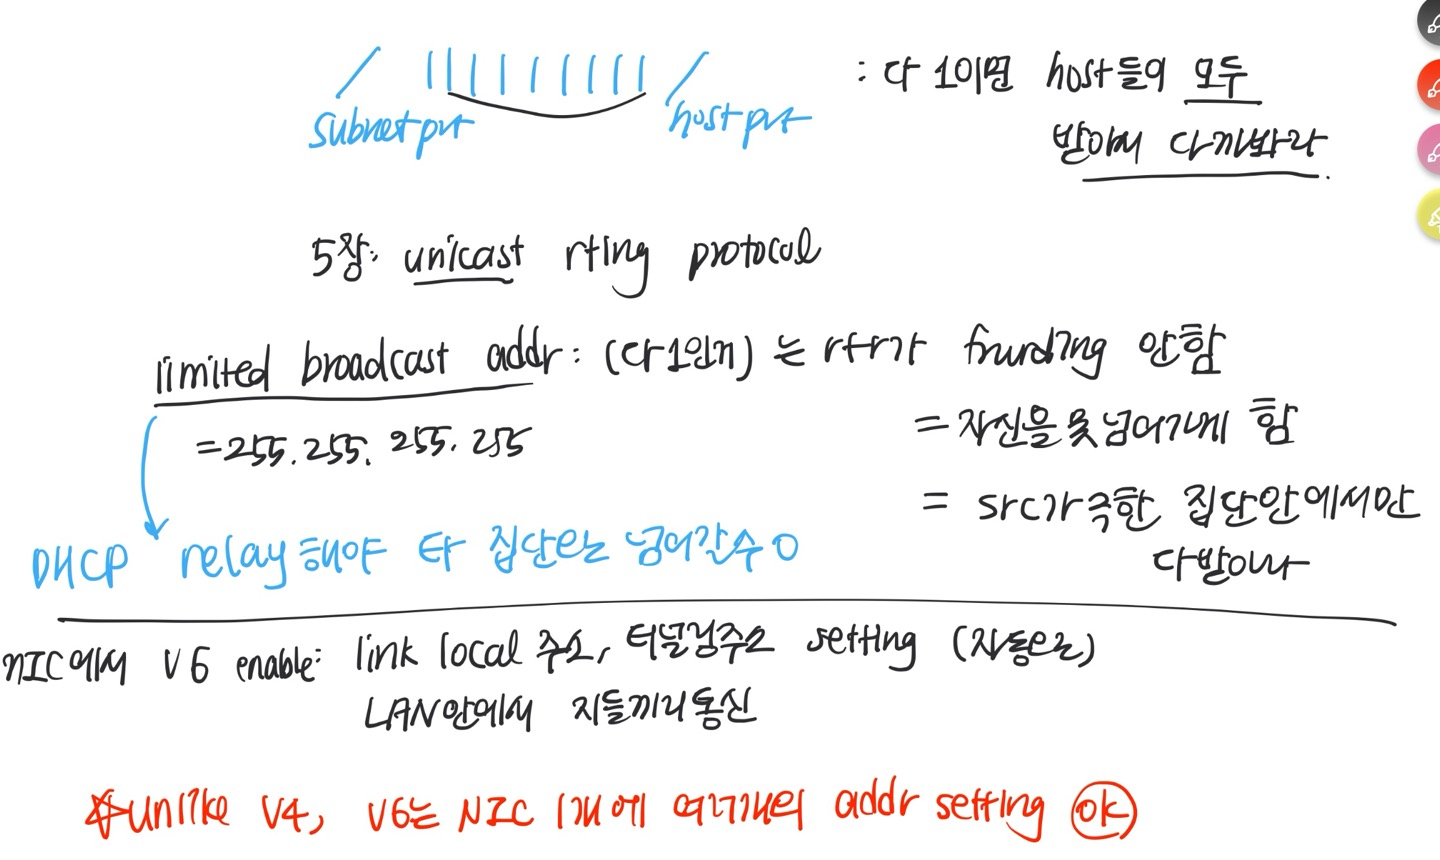 / | | | | | | | | | | / : 다 1이면 host들의 모두
subnet prt host prt
받아서 다까봐라.
5장: unicast rting protocol
limited broadcast addr : (다 1인거) 는 rtr가 안함
= 255.255.255.255
= 자신을 못넘어가게 함
= src가 속한 집단안에서만
다받아나
DHCP relay해야 타 집단으로 넘어갈수 O
NIC에서 V6 enable: link local 주소, 터널링주소 setting (자동으로)
LAN안에서 지들끼리통신
☆unlike V4, V6는 NIC 1개에 여러개의 addr setting OK